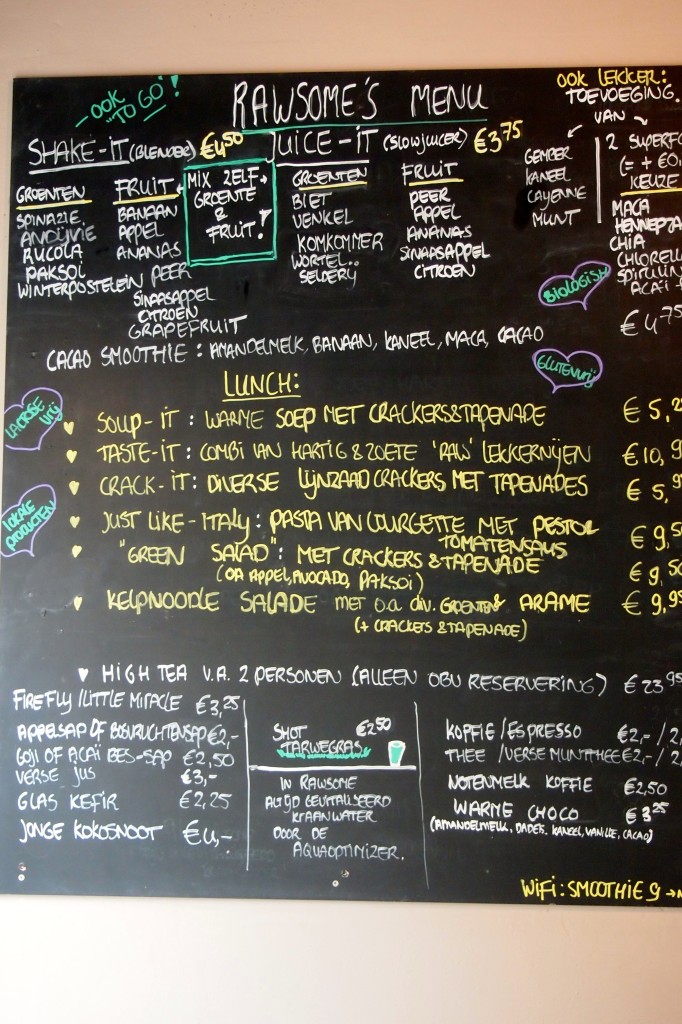 OOK "TO GO"!
RAWSOME'S MENU
OOK LEKKER:
TOEVOEGING
VAN
SHAKE-IT (BLENDER) €4,50
GROENTEN
SPINAZIE
ANDIJVIE
RUCOLA
PAKSOI
WINTERPOSTELEIN
FRUIT
BANAAN
APPEL
ANANAS
PEER
SINAASAPPEL
CITROEN
GRAPEFRUIT
MIX ZELF
GROENTE
&
FRUIT!
JUICE-IT (SLOWJUICER) €3,75
GROENTEN
BIET
VENKEL
KOMKOMMER
WORTEL..
SELDERY
FRUIT
PEER
APPEL
ANANAS
SINAASAPPEL
CITROEN
GEMBER
KANEEL
CAYENNE
MUNT
2 SUPERFO
(= + €0,
KEUZE
MACA
HENNEPZA
CHIA
CHLORELL
SPIRULIN
ACAÏ
BIOLOGISH
€4,75
CACAO SMOOTHIE : AMANDELMELK, BANAAN, KANEEL, MACA, CACAO
GLUTENVRIJ
LUNCH:
LACTOSE VRIJ
SOUP-IT : WARME SOEP MET CRACKERS&TAPENADE € 5,2
TASTE-IT: COMBI VAN HARTIG & ZOETE 'RAW' LEKKERNIJEN € 10,9
CRACK-IT: DIVERSE LIJNZAADCRACKERS MET TAPENADES € 5,9
LOKALE PRODUCTEN
JUST LIKE-ITALY: PASTA VAN COURGETTE MET PESTO/ TOMATENSAUS € 9,50
"GREEN SALAD": MET CRACKERS & TAPENADE € 9,50
(OA APPEL, AVOCADO, PAKSOI)
KELPNOODLE SALADE MET O.A DIV. GROENTEN & ARAME € 9,95
(+ CRACKERS & TAPENADE)
HIGH TEA V.A. 2 PERSONEN (ALLEEN OBV RESERVERING) € 23,95
FIREFLY/LITTLE MIRACLE €3,25
APPELSAP OF BOSVRUCHTENSAP €2,-
GOJI OF ACAÏ BES-SAP €2,50
VERSE JUS €3,-
GLAS KEFIR €2,25
JONGE KOKOSNOOT €4,-
SHOT €2,50
TARWEGRAS
IN RAWSOME
ALTIJD GEVITALISEERD
KRAANWATER
DOOR DE
AQUAOPTIMIZER.
KOFFIE/ESPRESSO €2,- / 2,
THEE /VERSE MUNTTHEE €2,- / 2,
NOTENMELK KOFFIE €2,50
WARME CHOCO € 3,25
(AMANDELMELK, DADELS, KANEEL, VANILLE, CACAO)
WIFI: SMOOTHIE 9